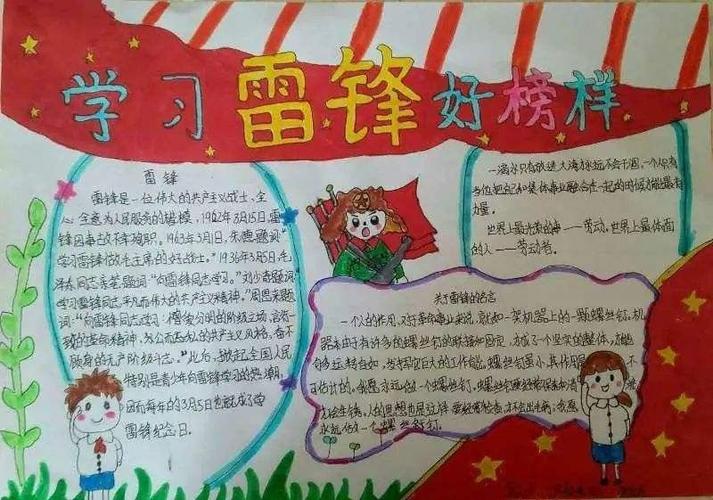 学习雷锋好榜样
雷锋
雷锋是一位伟大的共产主义战士，全
心全意为人民服务的楷模，1962年8月15日，雷
锋因事故不幸殉职。1963年3月1日，朱德题词
"学习雷锋做毛主席的好战士。"
东同志亲笔题词："向雷锋同志学习。"刘少奇题词
学习雷锋同志平凡而伟大的共产主义精神。"周恩来题
词："向雷锋同志学习：憎爱分明的阶级立场，言行一
致的革命精神，公而忘私的共产主义风格，奋不
顾身的无产阶级斗志。"此后，掀起全国人民
特别是青少年向雷锋学习的热潮，
因而每年的3月5日也就成了学
雷锋纪念日。
一滴水只有放进大海永远不会干涸，一个人只有
当他把自己和集体事业融合在一起的时候才能最有
力量。
世界上最光荣的事——劳动。世界上最体面
的人——劳动者。
关于雷锋的名言
一个人的作用，对于革命事业来说，就如一架机器上的一颗螺丝钉。机
器由于有许多的螺丝钉的联接和固定，方成了一个坚实的整体，才能
够运转自如，发挥它巨大的工作能。螺丝钉虽小，其作用是不
可估计的。我愿永远做一个螺丝钉。螺丝钉要经常保养和清
才不会生锈。人的思想也是这样，要经常检查，才不会出毛病；我愿
永远做一个螺丝钉。